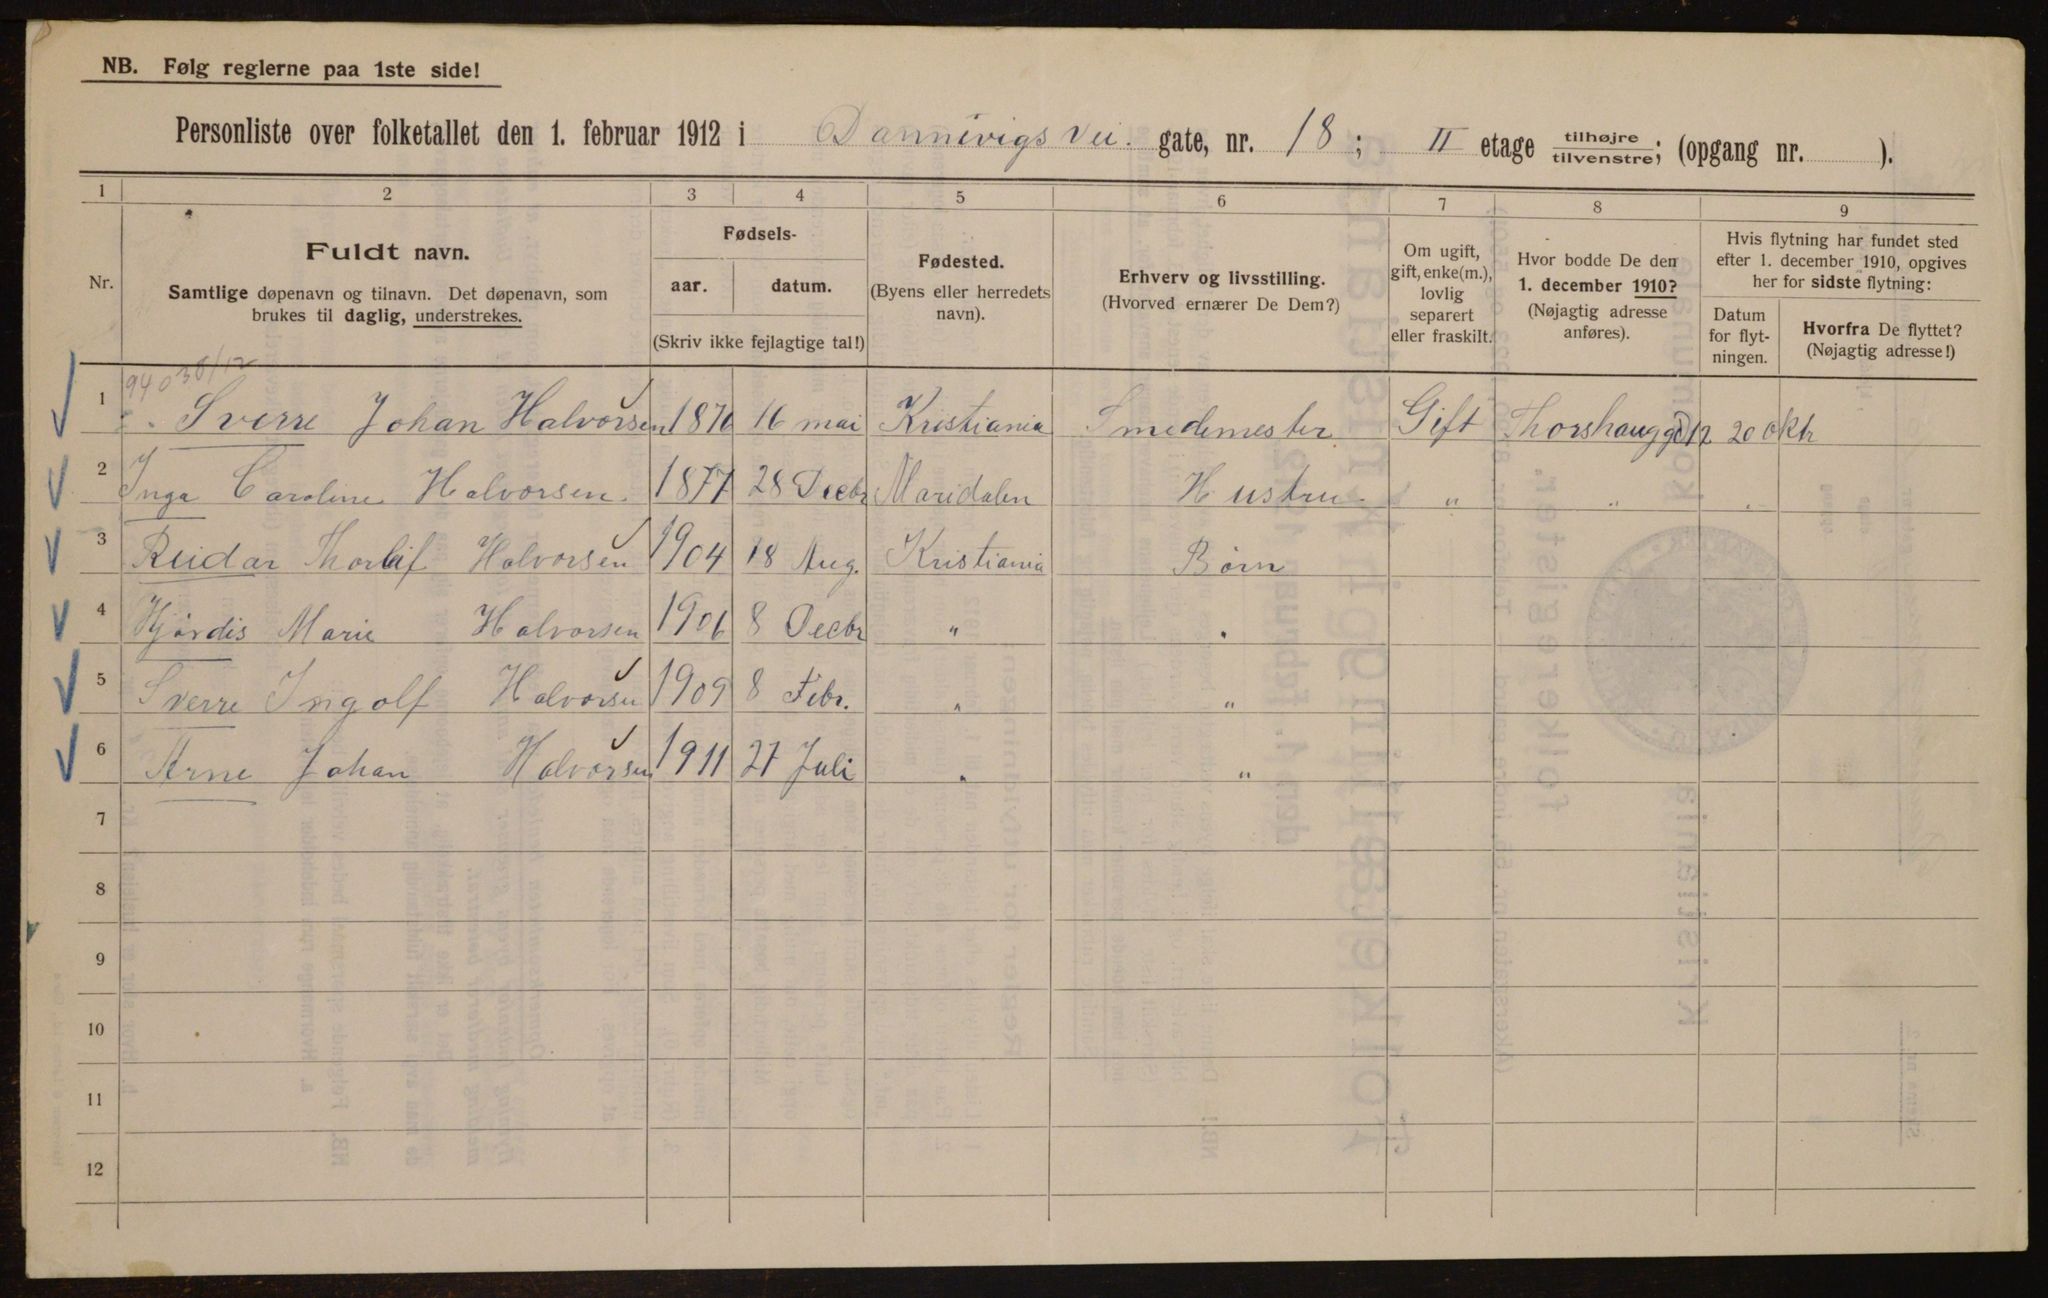 NB. Følg reglerne paa 1ste side!
Personliste over folketallet den 1. februar 1912 i Dannevigs vei. gate, nr. 18; II etage tilhøjre tilvenstre; (opgang nr. ).
1 2 3 4 5 6 7 8 9
Nr.
Fuldt navn.
Samtlige døpenavn og tilnavn. Det døpenavn, som
brukes til daglig, understrekes.
Fødsels-
aar. datum.
(Skriv ikke fejlagtige tal!)
Fødested.
(Byens eller herredets
navn).
Erhverv og livsstilling.
(Hvorved ernærer De Dem?)
Om ugift,
gift, enke(m.),
lovlig
separert
eller fraskilt.
Hvor bodde De den
1. december 1910?
(Nøjagtig adresse
anføres).
Hvis flytning har fundet sted
efter 1. december 1910, opgives
her for sidste flytning:
Datum
for flyt-
ningen.
Hvorfra De flyttet?
(Nøjagtig adresse!)
1 Sverre Johan Halvorsen 1876 16 mai Kristiania Smedemester Gift Thorshauggd 12 20 Okt
2 Inga Caroline Halvorsen 1877 28 Decbr Maridalen Hustru " " "
3 Reidar Thorleif Halvorsen 1904 18 Aug. Kristiania Børn
4 Hjørdis Marie Halvorsen 1906 8 Decbr " "
5 Sverre Ingolf Halvorsen 1909 8 Febr. " "
6 Arne Johan Halvorsen 1911 27 Juli " "
7
8
9
10
11
12